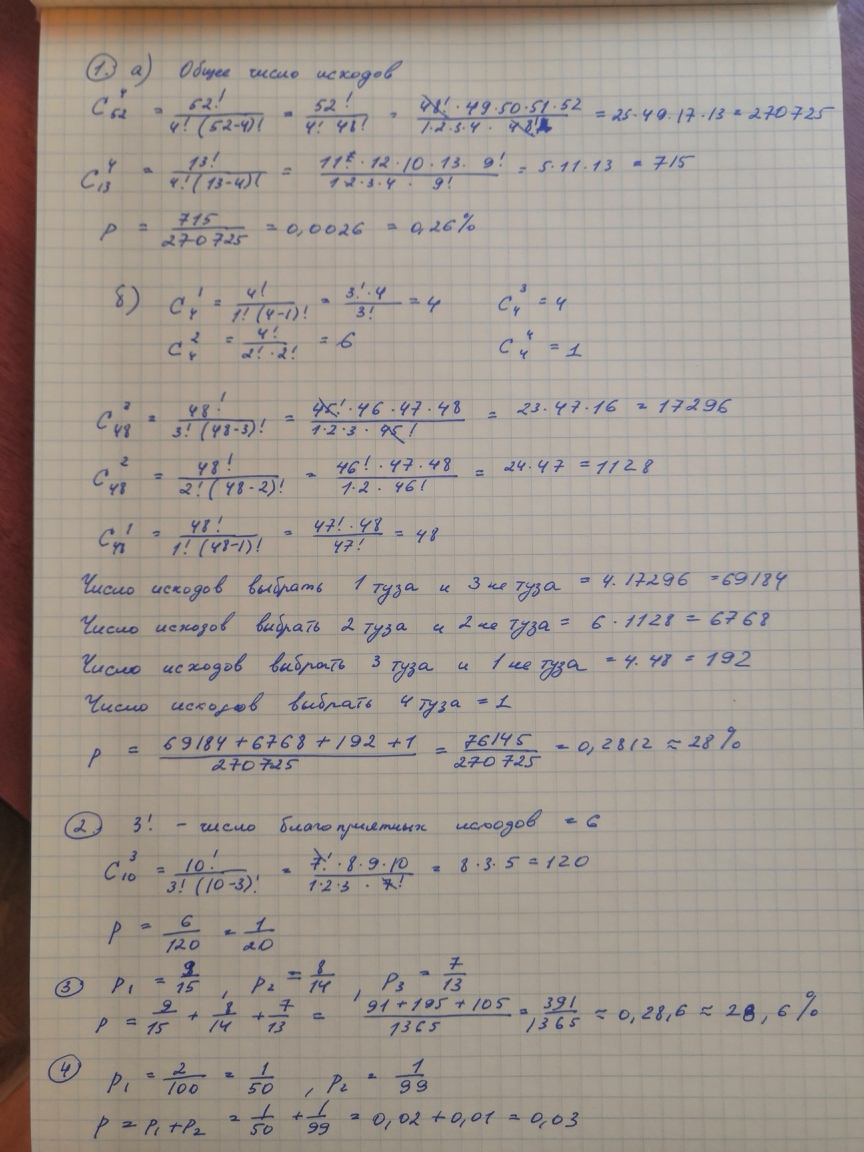 1. а) Общее число исходов
C₅₂⁴ = 52! / 4! (52-4)! = 52! / 4! 48! = 48! · 49 · 50 · 51 · 52 / 1·2·3·4 · 48! = 25·49·17·13 = 270725
C₁₃⁴ = 13! / 4! (13-4)! = 11! · 12 · 10 · 13 · 9! / 1·2·3·4 · 9! = 5·11·13 = 715
P = 715 / 270725 = 0,0026 = 0,26%
б) C₄¹ = 4! / 1! (4-1)! = 3! · 4 / 3! = 4 C₄³ = 4
C₄² = 4! / 2! · 2! = 6 C₄⁴ = 1
C₄₈³ = 48! / 3! (48-3)! = 45! · 46 · 47 · 48 / 1·2·3 · 45! = 23·47·16 = 17296
C₄₈² = 48! / 2! (48-2)! = 46! · 47 · 48 / 1·2 · 46! = 24·47 = 1128
C₄₈¹ = 48! / 1! (48-1)! = 47! · 48 / 47! = 48
Число исходов выбрать 1 туза и 3 не туза = 4·17296 = 69184
Число исходов выбрать 2 туза и 2 не туза = 6·1128 = 6768
Число исходов выбрать 3 туза и 1 не туза = 4·48 = 192
Число исходов выбрать 4 туза = 1
P = 69184 + 6768 + 192 + 1 / 270725 = 76145 / 270725 = 0,2812 ≈ 28%
2. 3! - число благоприятных исходов = 6
C₁₀³ = 10! / 3! (10-3)! = 7! · 8 · 9 · 10 / 1·2·3 · 7! = 8·3·5 = 120
P = 6 / 120 = 1 / 20
3 P₁ = 9 / 15 , P₂ = 8 / 14 , P₃ = 7 / 13
P = 9 / 15 + 8 / 14 + 7 / 13 = 91 + 195 + 105 / 1365 = 391 / 1365 ≈ 0,28,6 ≈ 28,6%
4 P₁ = 2 / 100 = 1 / 50 , P₂ = 1 / 99
P = P₁ + P₂ = 1 / 50 + 1 / 99 = 0,02 + 0,01 = 0,03